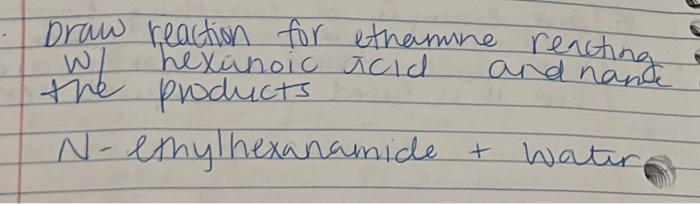 Draw reaction for ethamine reacting
w/ hexanoic acid and name
the products
N-ethylhexanamide + water